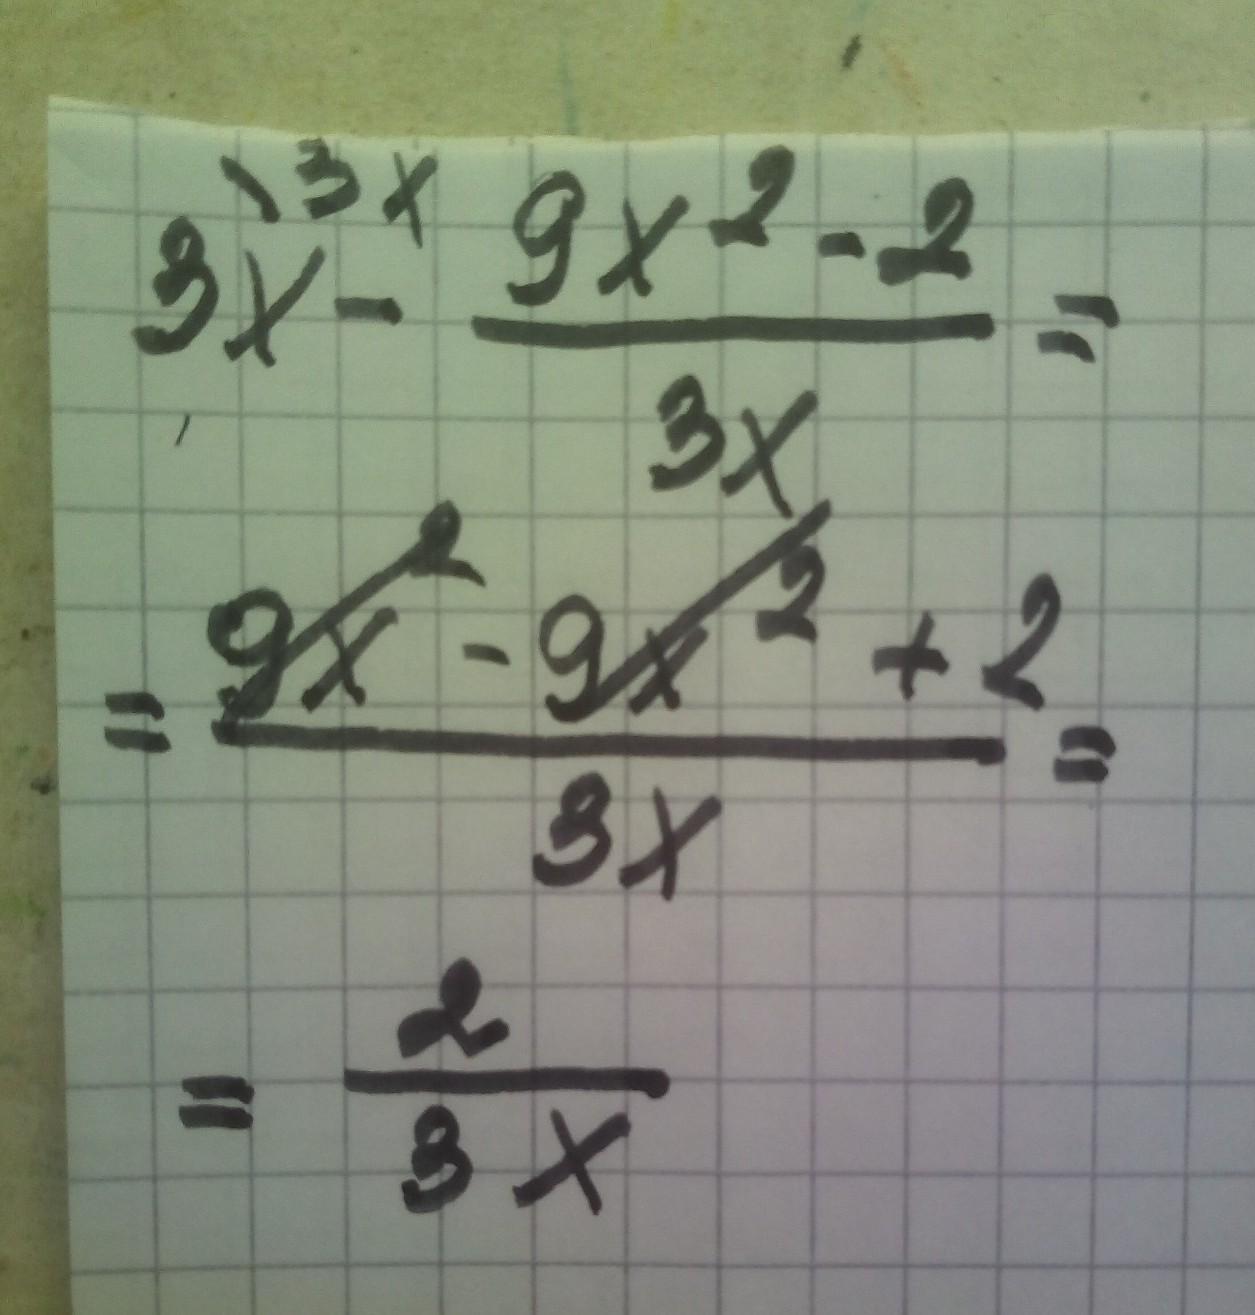 3x\3x - (9x² - 2)/(3x) =
= (9x² - 9x² + 2)/(3x) =
= 2/(3x)